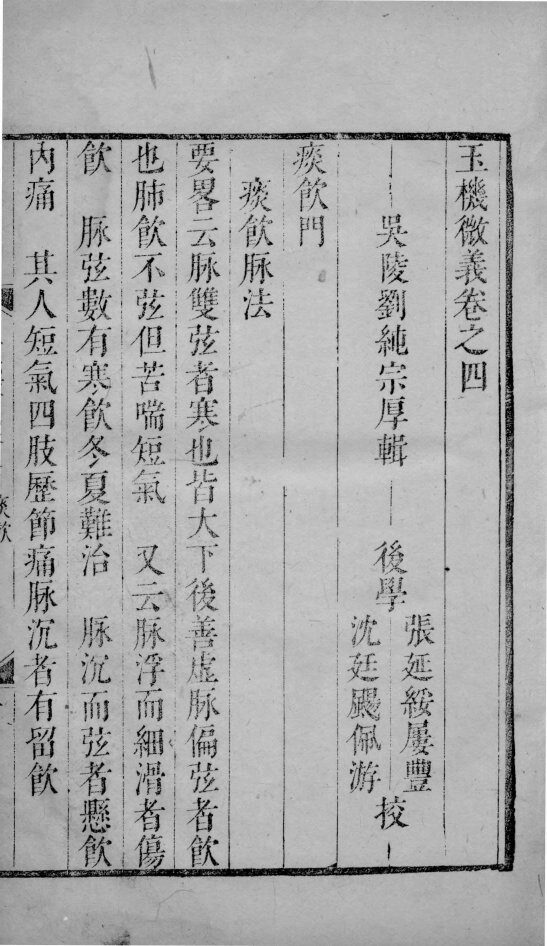 玉機微義卷之四
吳陵劉純宗厚輯　後學
張延綏屢豐
沈廷颺佩游
校
痰飲門
痰飲脉法
要畧云脉雙弦者寒也皆大下後善虛脉偏弦者飲
也肺飲不弦但苦喘短氣　又云脉浮而細滑者傷
飲　脉弦數有寒飲冬夏難治　脉沉而弦者懸飲
內痛　其人短氣四肢歷節痛脉沉者有留飲